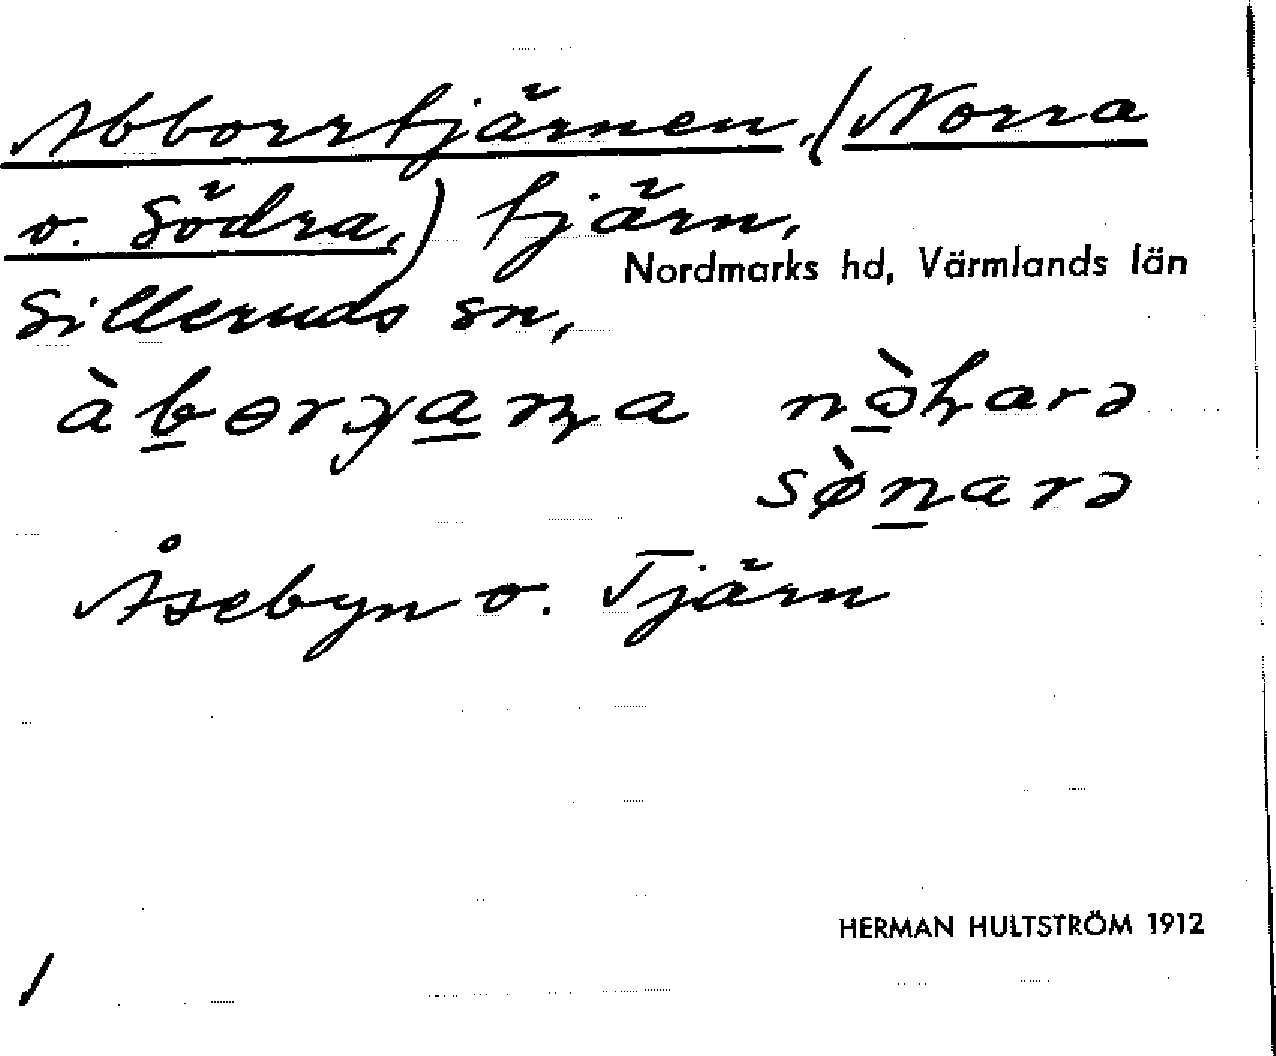 Abborrtjärnen, (Norra
o. Södra,) tjärn,
Nordmarks hd, Värmlands län
Silleruds sn,
Åsebyn o. Tjärn
HERMAN HULTSTRÖM 1912